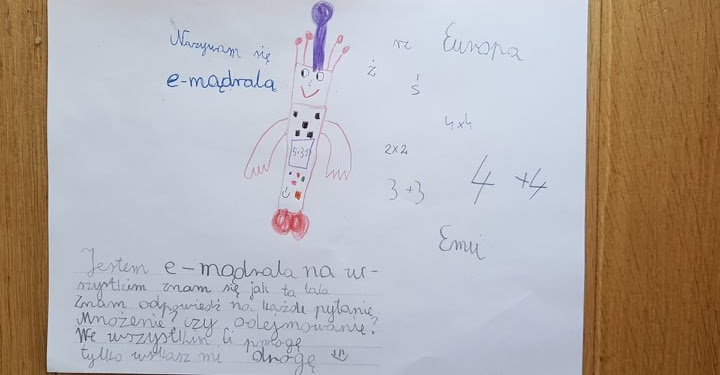 Nazywam się
e-mądrala
ż
rz
Europa
ś
4x4
2x2
3+3
4 +4
Emii
Jestem e-mądrala na w-
szystkim znam się jak ta lala
Znam odpowiedź na każde pytanie
Mnożenie? czy odejmowanie?
We wszystkim Ci pomogę
tylko wskaż mi drogę